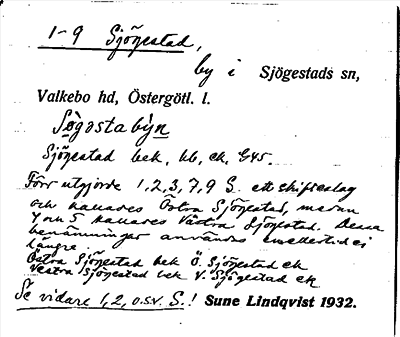 1-9 Sjögestad,
by i Sjögestads sn,
Valkebo hd, Östergötl. l.
Sögostabýn
Sjögestad bek, kb, ek, G45.
Förr utgjorde 1,2,3,7,9 S. ett skifteslag
och kallades Östra Sjögestad, medan
4 och 5 kallades Västra Sjögestad. Dessa
benämningar användas emellertid ei
längre.
Östra Sjögestad bek Ö. Sjögestad ek
Västra Sjögestad bek V. Sjögestad ek
Se vidare 1,2, o.s.v. S.! Sune Lindqvist 1932.